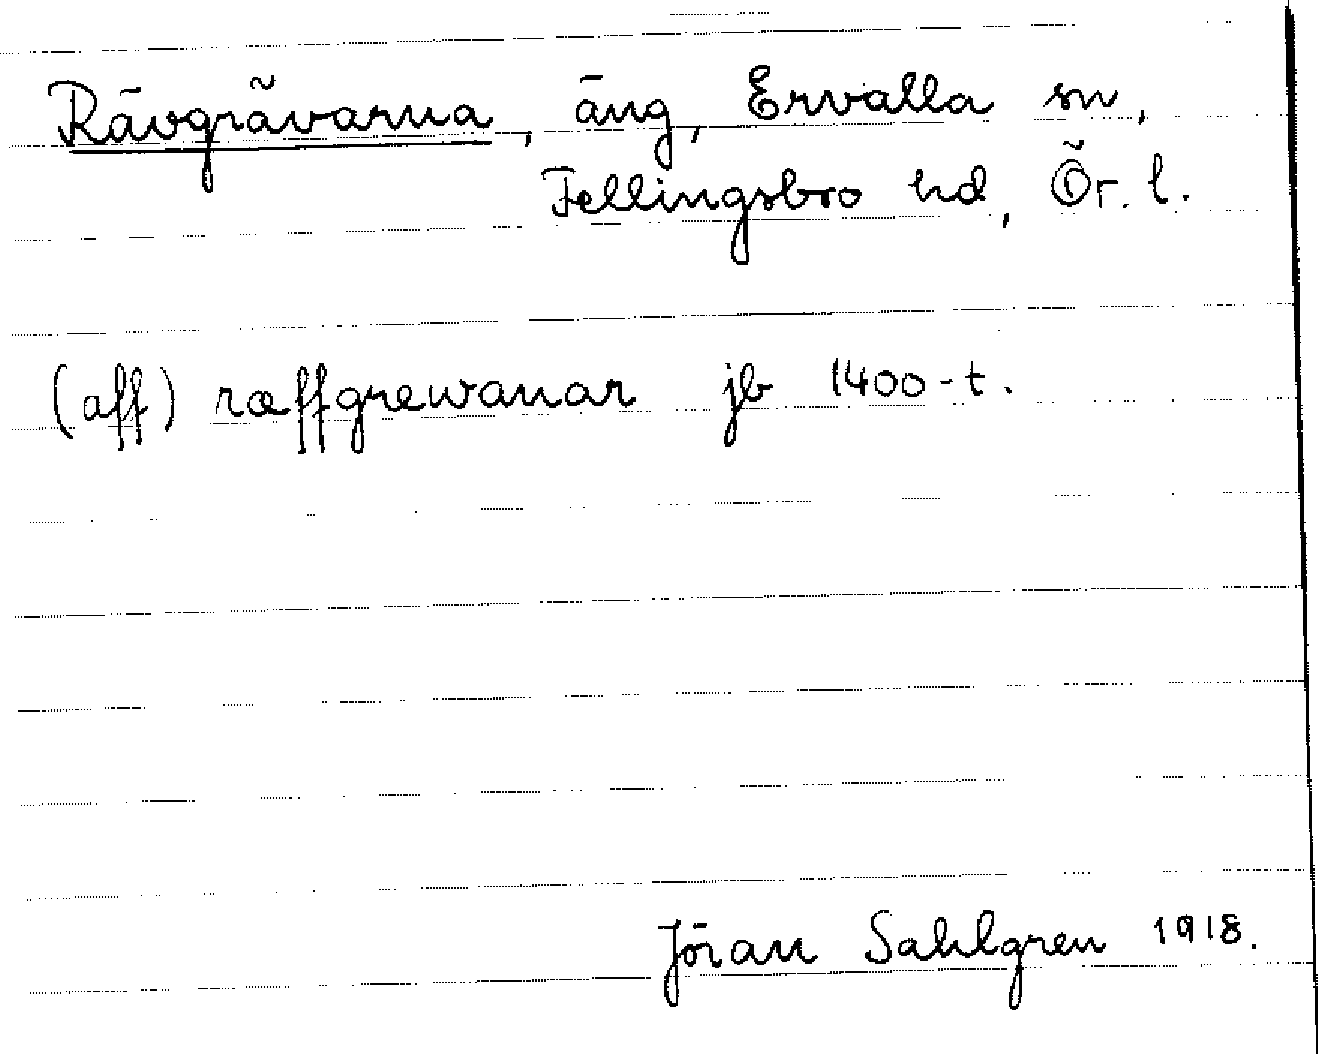 Rävgrävarna, äng, Ervalla sn,
Fellingsbro hd, Ör. l.
(aff) ræffgrewanar jb 1400-t.
Jöran Sahlgren 1918.